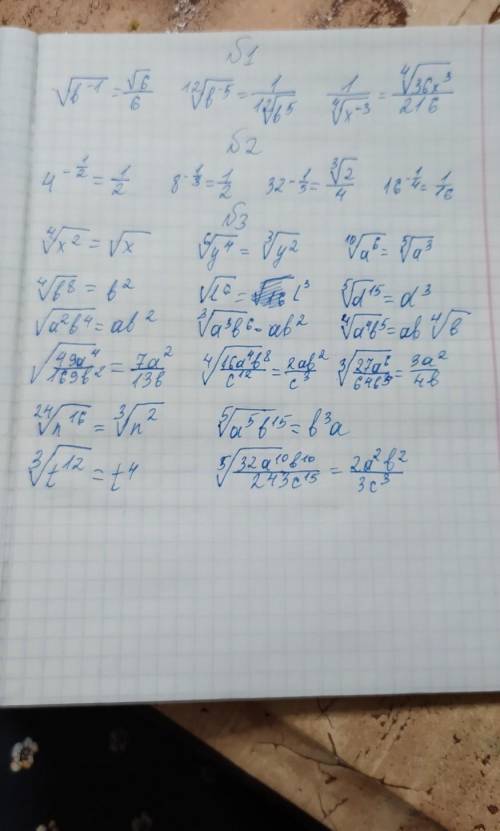 №1
√(b⁻¹) = √6/6 ¹²√(b⁻⁵) = 1/¹²√(b⁵) 1/⁴√(x⁻³) = ⁴√(36x³)/216
№2
4^(-1/2) = 1/2 8^(-1/3) = 1/2 32^(-1/3) = ³√2/4 16^(-1/4) = 1/16
№3
⁴√(x²) = √x ⁶√(y⁴) = ³√(y²) ¹⁰√(a⁶) = ⁵√(a³)
⁴√(b⁸) = b² √(l⁶) = l³ ⁵√(d¹⁵) = d³
√(a²b⁴) = ab² ³√(a³b⁶) = ab² ⁴√(a⁴b⁵) = ab ⁴√b
√(49a⁴/169b²) = 7a²/13b ⁴√(16a⁴b⁸/c¹²) = 2ab²/c³ ³√(27a⁶/64b³) = 3a²/4b
²⁴√(n¹⁶) = ³√(n²) ⁵√(a⁵b¹⁵) = b³a
³√(t¹²) = t⁴ ⁵√(32a¹⁰b¹⁰/243c¹⁵) = 2a²b²/3c³